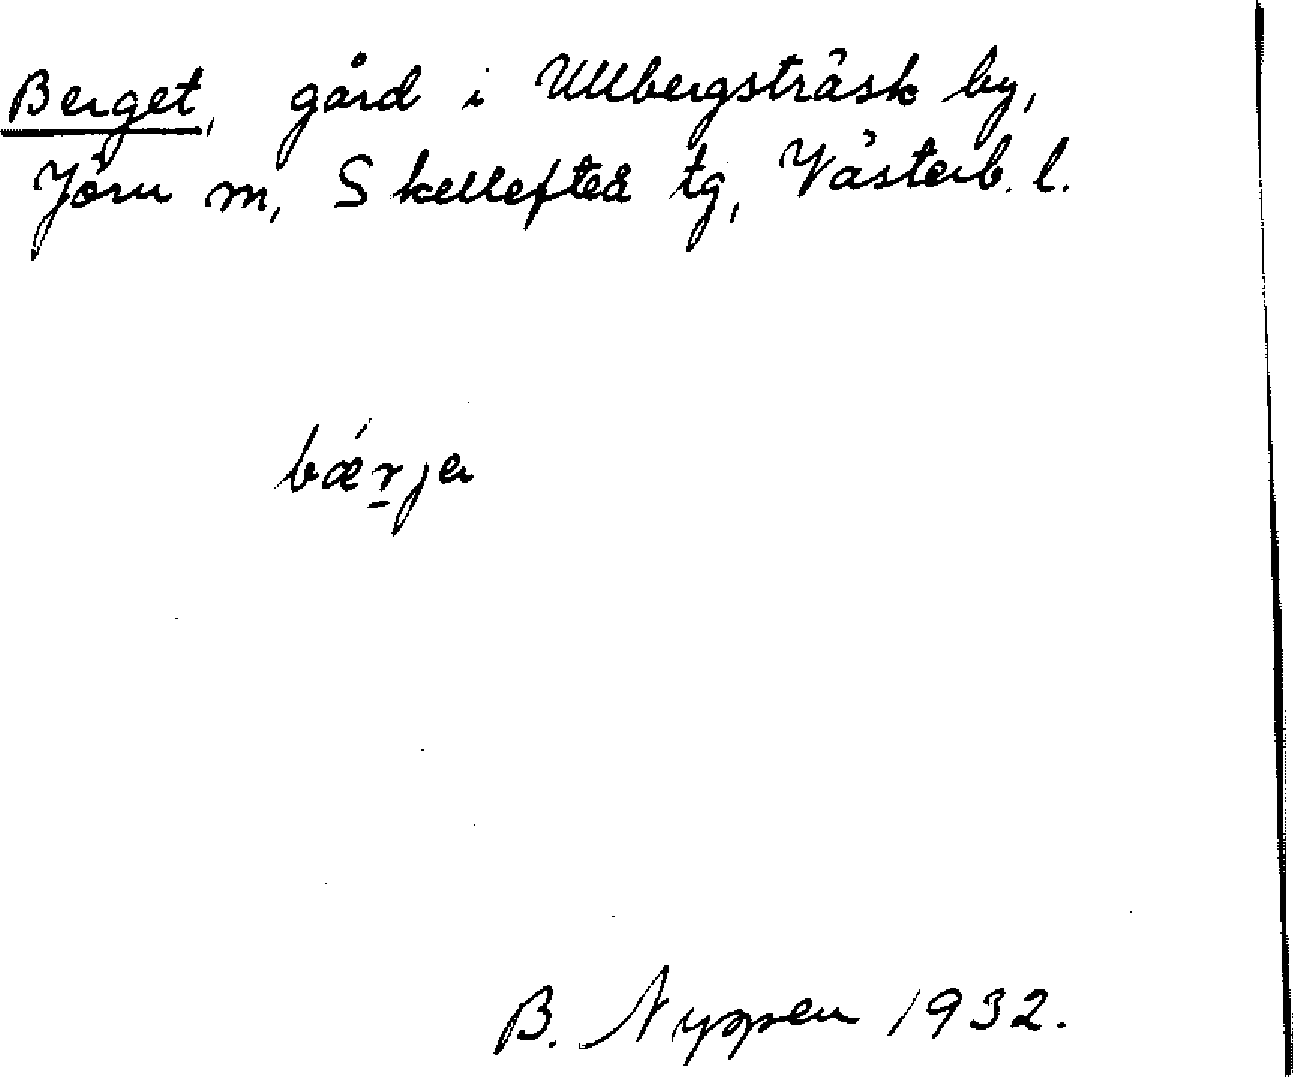 Berget, gård i Ullbergsträsk by,
Jörn m, Skellefteå tg, Västerb. l.
bǽr̠ja
B. Nyppen 1932.